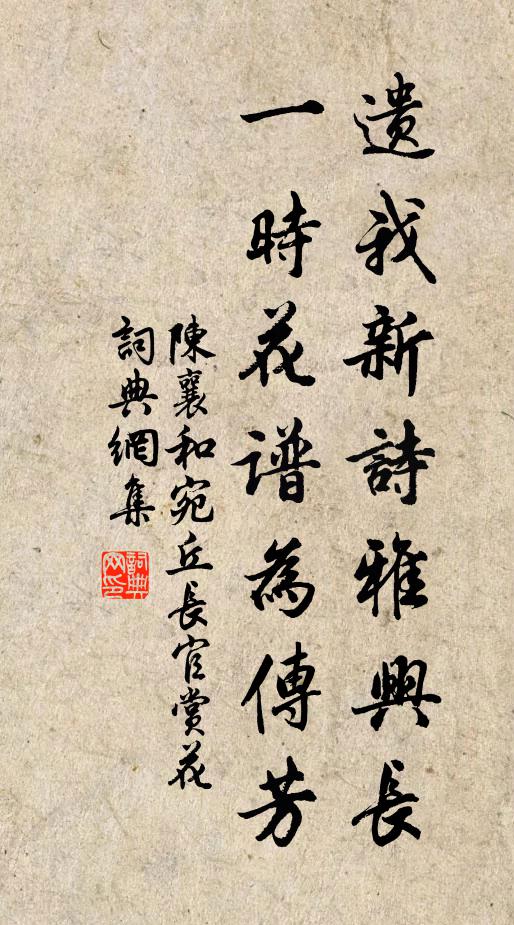 遺我新詩雅興長
一時花譜為傳芳
陳襄和宛丘長官賞花
詞典網集
詞典網印